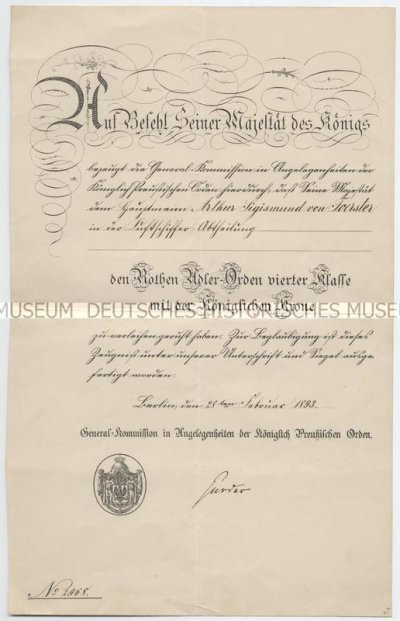 Auf Befehl Seiner Majestät des Königs
bezeugt die General-Kommission in Angelegenheiten der
Königlich Preußischen Orden hierdurch, daß Seine Majestät
dem Hauptmann Arthur Sigismund von
in der Luftschiffer-Abtheilung
den Rothen Adler-Orden vierter Klasse
MUSEUM DEUTSCHES HISTORISCHES MUSEUM
mit der Königlichen Krone
zu verleihen geruht haben. Zur Beglaubigung ist dieses
Zeugniß unter unserer Unterschrift und Siegel ausge-
fertigt worden.
Berlin, den 28ten Februar 1893.
General-Kommission in Angelegenheiten der Königlich Preußischen Orden.
No 2968.